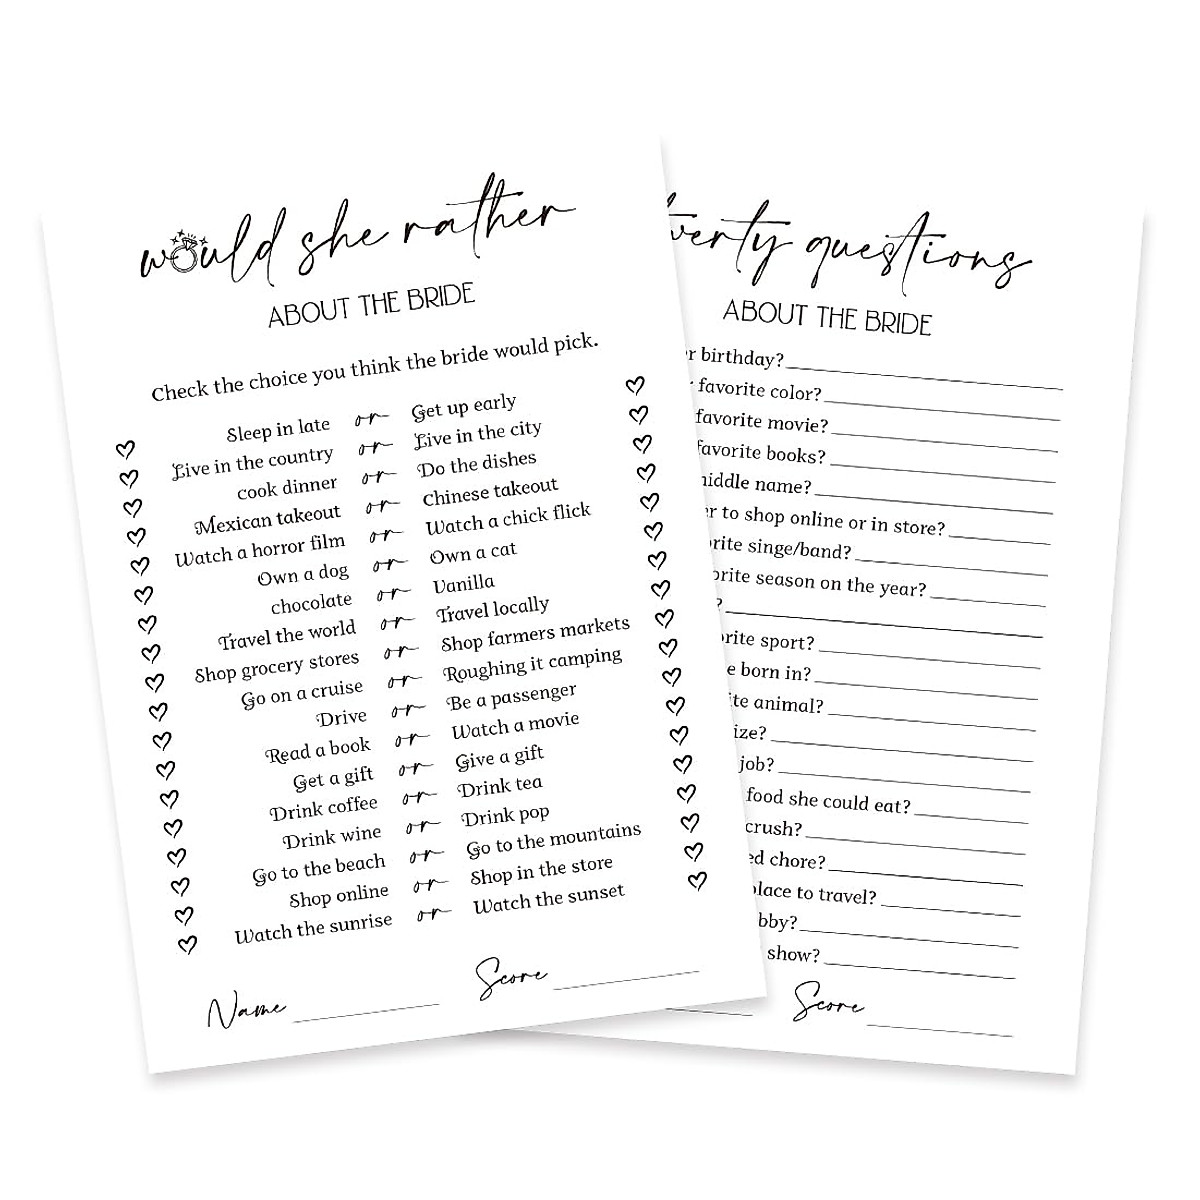 would she rather
ABOUT THE BRIDE
Check the choice you think the bride would pick.
Sleep in late or Get up early
Live in the country or Live in the city
cook dinner or Do the dishes
Mexican takeout or Chinese takeout
Watch a horror film or Watch a chick flick
Own a dog or Own a cat
chocolate or Vanilla
Travel the world or Travel locally
Shop grocery stores or Shop farmers markets
Go on a cruise or Roughing it camping
Drive or Be a passenger
Read a book or Watch a movie
Get a gift or Give a gift
Drink coffee or Drink tea
Drink wine or Drink pop
Go to the beach or Go to the mountains
Shop online or Shop in the store
Watch the sunrise or Watch the sunset
Name Score
questions
ABOUT THE BRIDE
birthday?
favorite color?
favorite movie?
favorite books?
name?
to shop online or in store?
singe/band?
season on the year?
?
sport?
born in?
animal?
job?
food she could eat?
crush?
chore?
to travel?
show?
Score